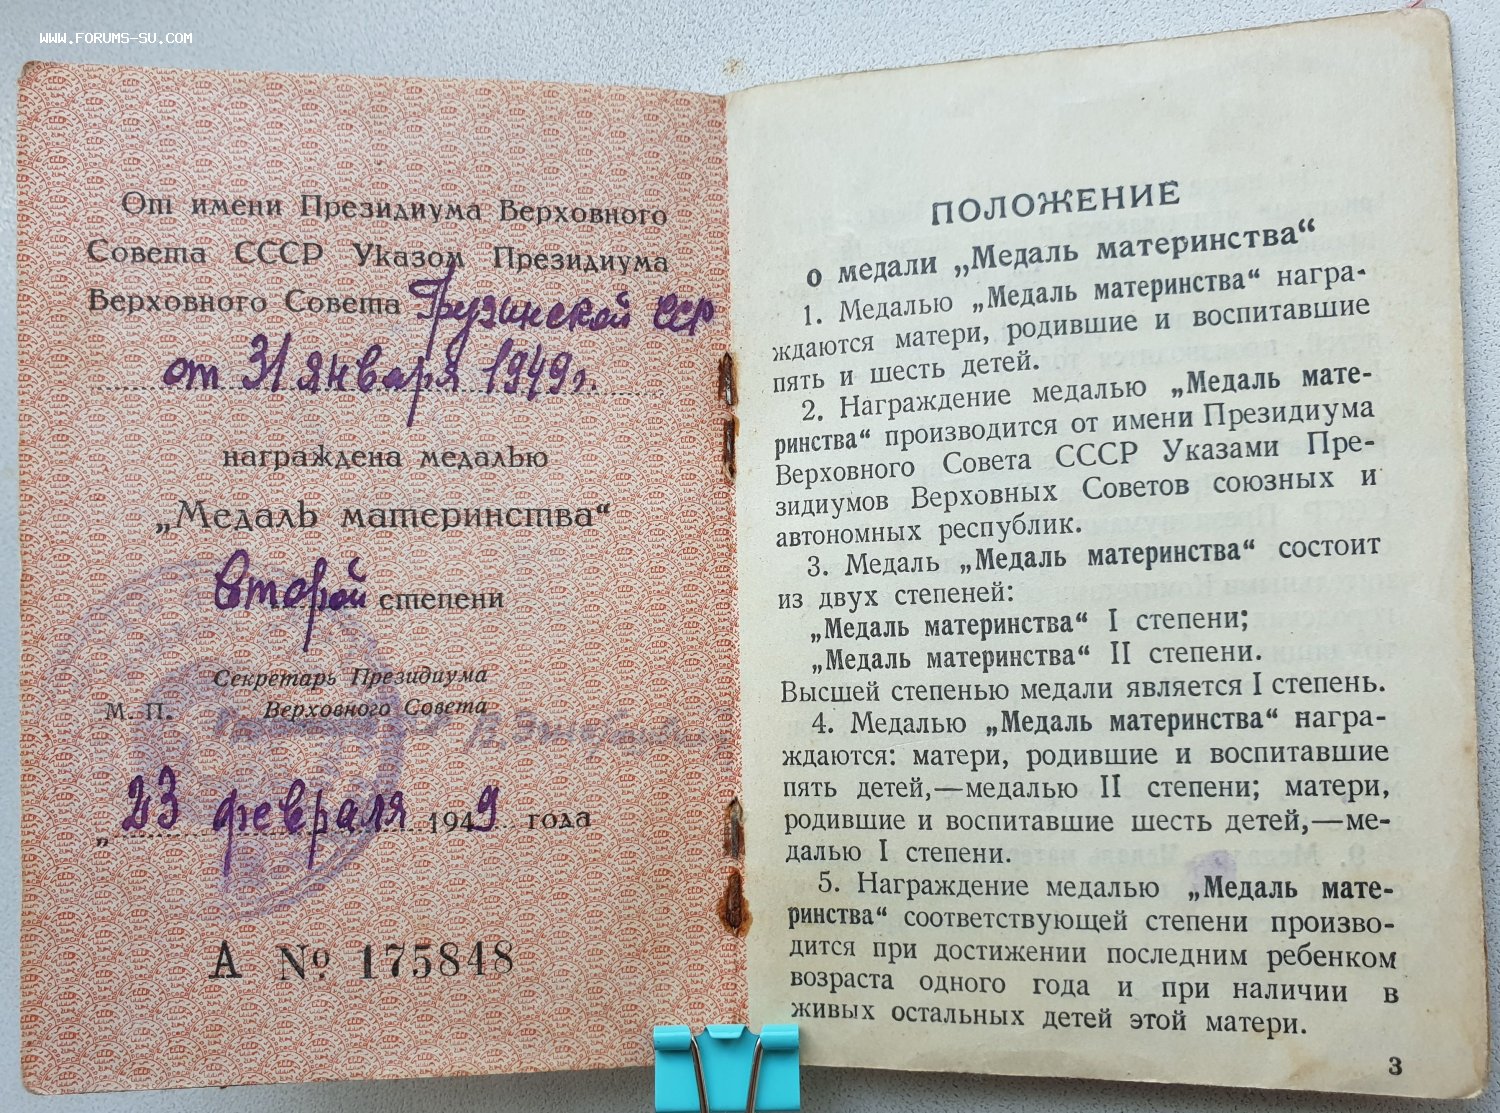 WWW.FORUMS-SU.COM
От имени Президиума Верховного
Совета СССР Указом Президиума
Верховного Совета Грузинской ССР
от 31 января 1949 г.
награждена медалью
„Медаль материнства“
второй степени
Секретарь Президиума
М. П. Верховного Совета
„ 23 февраля 1949 года
А № 175848
ПОЛОЖЕНИЕ
о медали „Медаль материнства“
1. Медалью „Медаль материнства“ награ-
ждаются матери, родившие и воспитавшие
пять и шесть детей.
2. Награждение медалью „Медаль мате-
ринства“ производится от имени Президиума
Верховного Совета СССР Указами Пре-
зидиумов Верховных Советов союзных и
автономных республик.
3. Медаль „Медаль материнства“ состоит
из двух степеней:
„Медаль материнства“ I степени;
„Медаль материнства“ II степени.
Высшей степенью медали является I степень.
4. Медалью „Медаль материнства“ награ-
ждаются: матери, родившие и воспитавшие
пять детей,—медалью II степени; матери,
родившие и воспитавшие шесть детей,—ме-
далью I степени.
5. Награждение медалью „Медаль мате-
ринства“ соответствующей степени произво-
дится при достижении последним ребенком
возраста одного года и при наличии в
живых остальных детей этой матери.
3